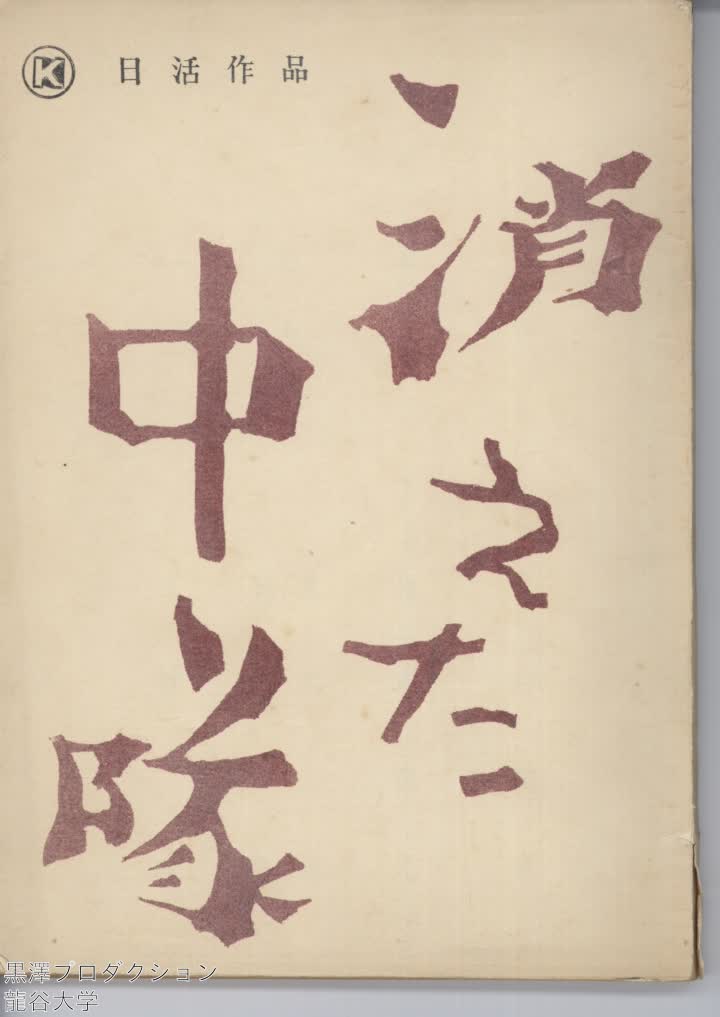 K 日活作品
消えた
中隊
黒澤プロダクション
龍谷大学